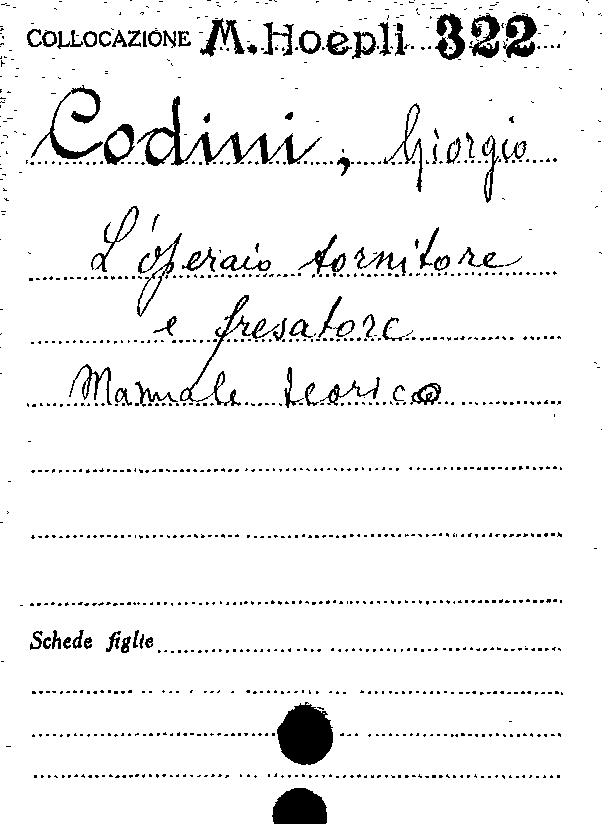 COLLOCAZIONE M. Hoepli 322
Codini, Giorgio
L'operaio tornitore
e fresatore
Manuale teorico
Schede figlie